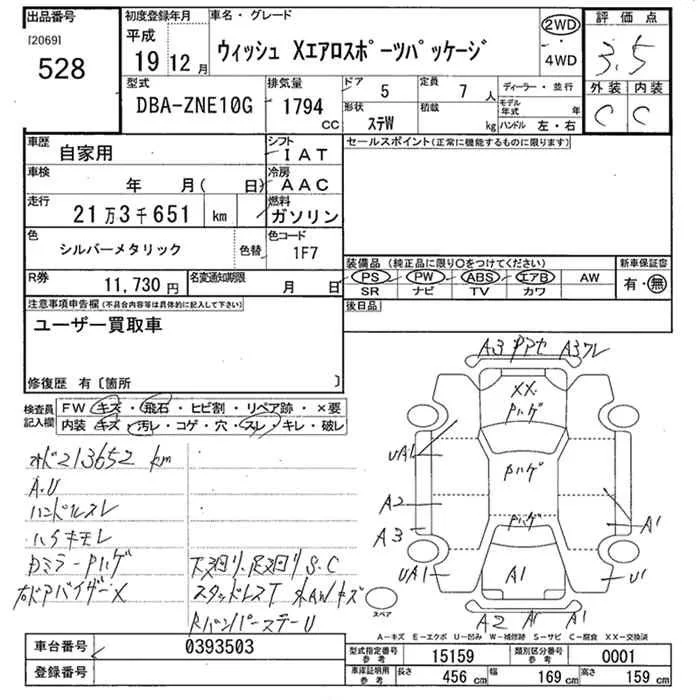 出品番号
[2069]
528
初度登録年月
平成
19年12月
車名・グレード
ウィッシュ XエアロスポーツパッケージS
2WD
・
4WD
評価点
3.5
外装 内装
C C
型式
DBA-ZNE10G
排気量
1794
CC
ドア 5
定員 7人
形状 ステW
積載 kg
ディーラー・並行
モデル年式 年
ハンドル 左・右
車歴 自家用
シフト IAT
車検 年 月( 日)
冷房 AAC
走行 21万3千651 km
燃料 ガソリン
色 シルバーメタリック 色替
色コード 1F7
R券 11,730円
名変通知期限 月 日
セールスポイント(正常に機能するものに限ります)
装備品(純正品に限り○をつけてください)
PS PW ABS エアB AW
SR ナビ TV カワ
新車保証書
有・無
後日品
注意事項申告欄(不具合内容等は具体的に記入して下さい)
ユーザー買取車
修復歴 有〔箇所 〕
検査員記入欄
FW キズ・飛石・ヒビ割・リペア跡・×要
内装 キズ・汚レ・コゲ・穴・スレ・キレ・破レ
オド213652 km
A.U
ハンドルスレ
ハイキモレ
カミラーPハゲ
右ドアバイザーX
下廻り、足廻りS.C
スタッドレスT 水AWキズ
RバンパーステーU
A3 Pアセ A3ワレ
XX
Pハゲ
UA1
Pハゲ
A2
Pハゲ
A3
A1
UA1
A1
U1
A2 A1 A1
スペア
A-キズ E-エクボ U-凹み W-補修跡 S-サビ C-腐食 XX-交換済
車台番号 0393503
登録番号
型式指定番号 参考 15159
類別区分番号 参考 0001
車庫証明用 参考
長さ 456 cm
幅 169 cm
高さ 159 cm